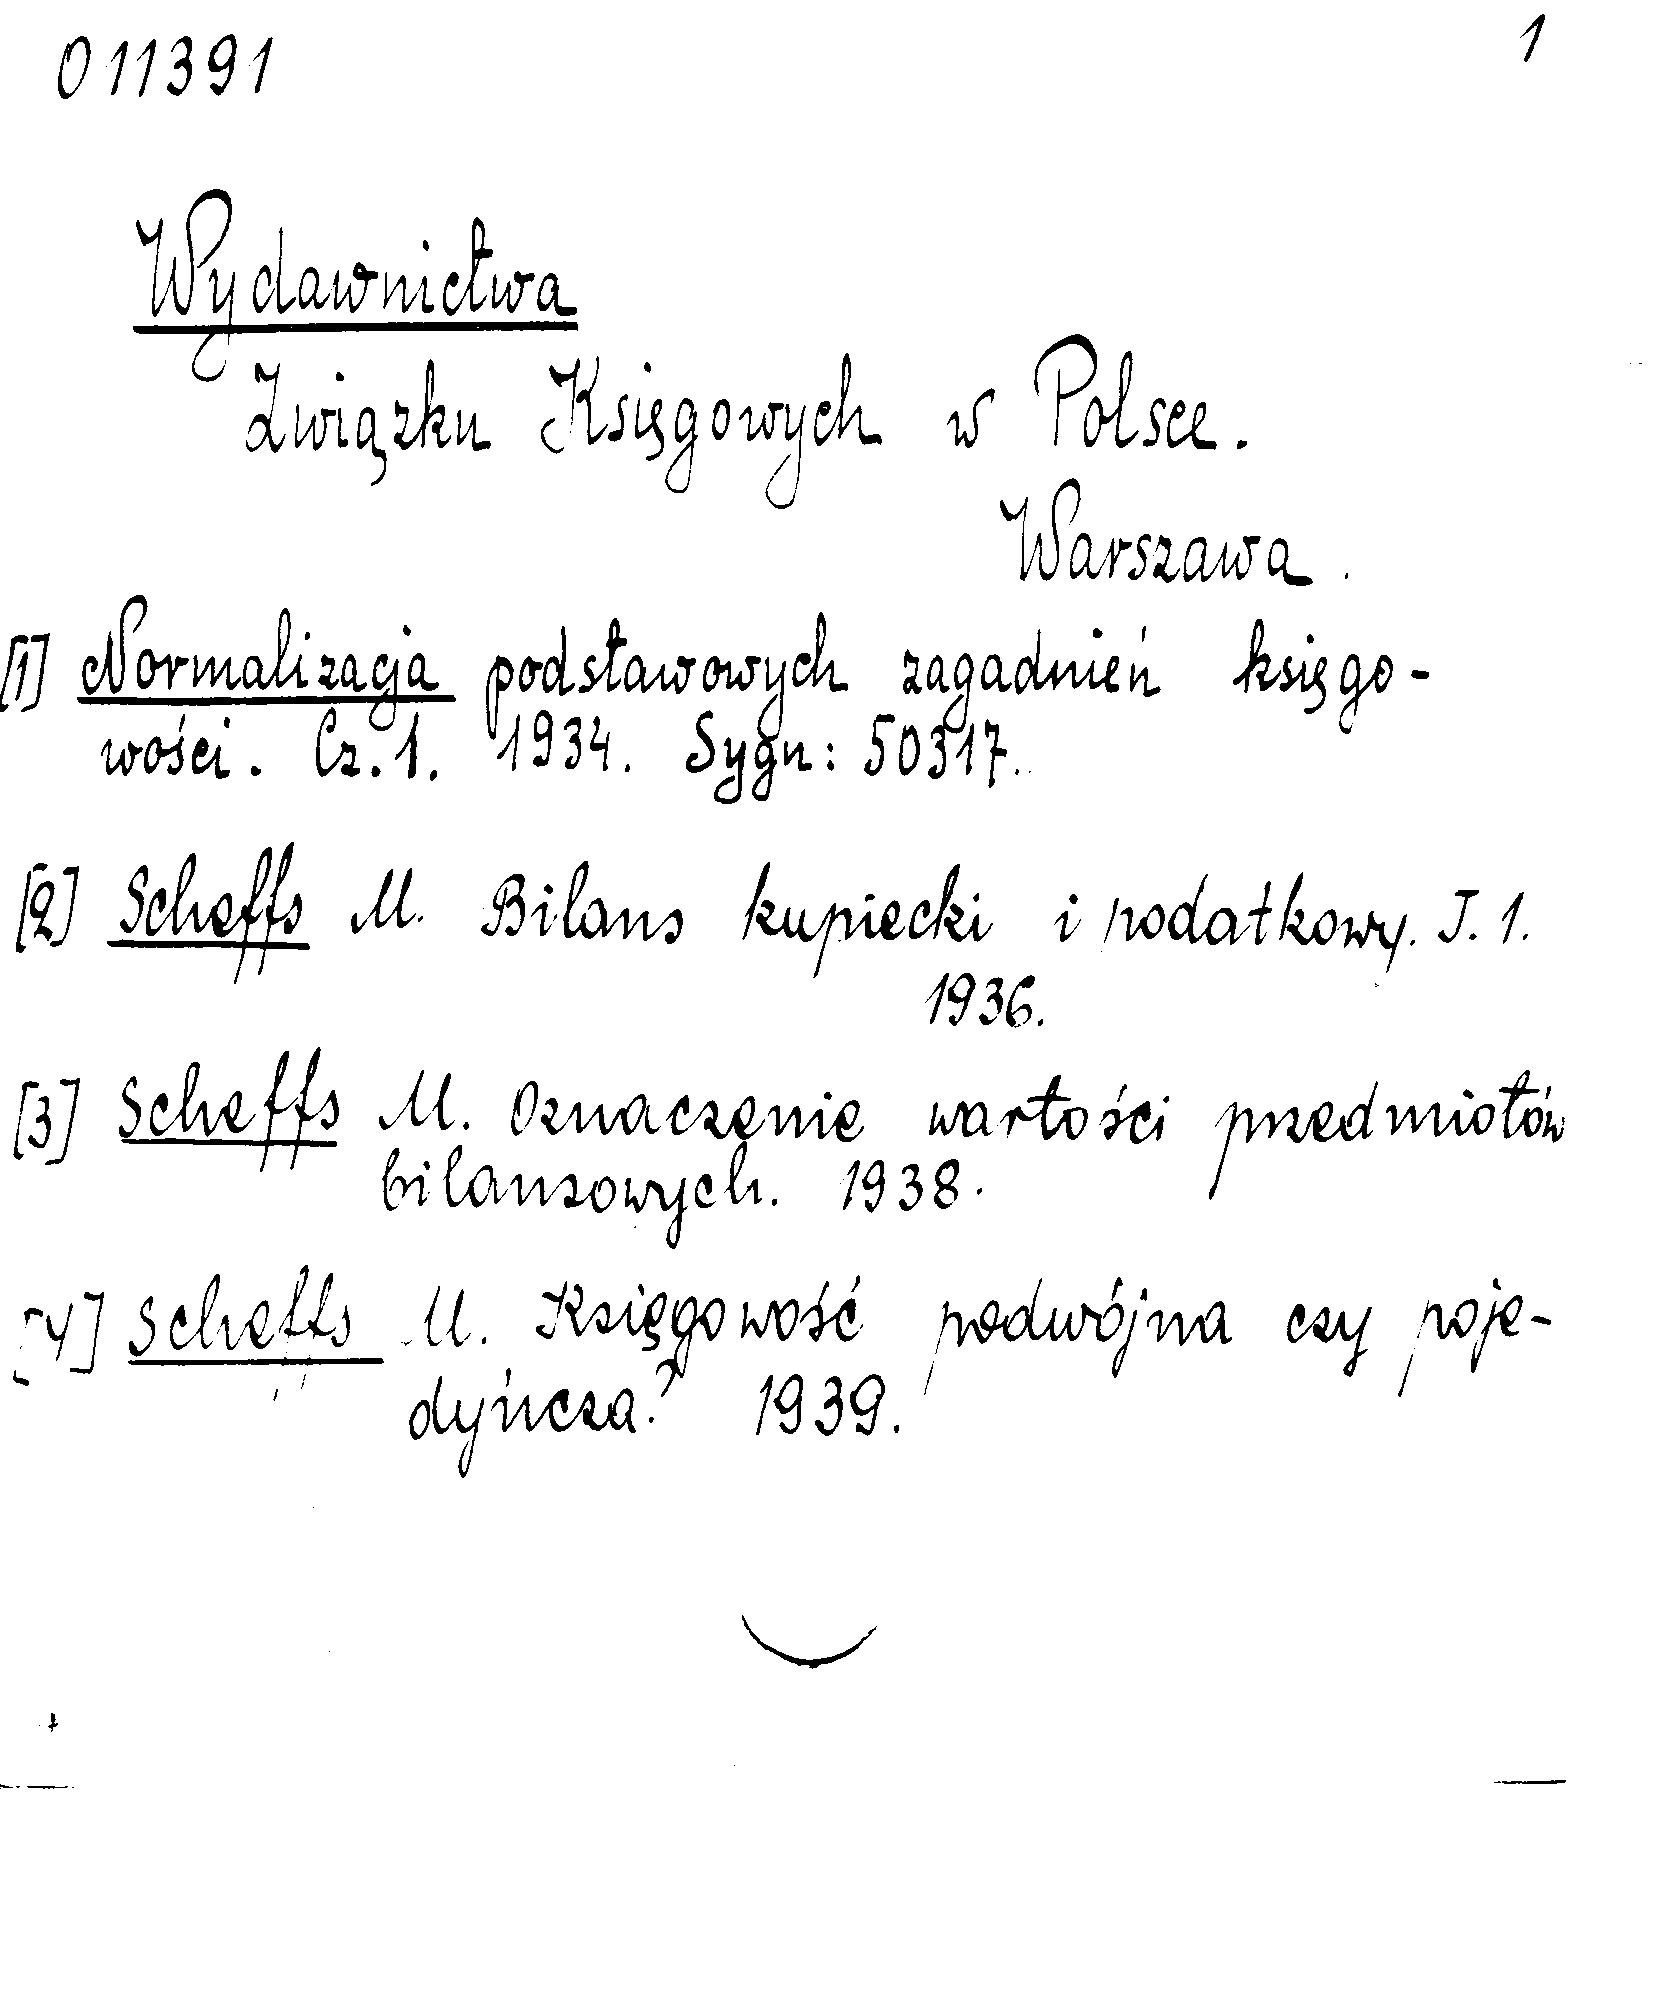 011391 1
Wydawnictwa
Związku Księgowych w Polsce.
Warszawa.
[1] Normalizacja podstawowych zagadnień księgo-
wości. Cz. 1. 1934. Sygn: 50317.
[2] Scheffs M. Bilans kupiecki i podatkowy. T. 1.
1936.
[3] Scheffs M. Oznaczenie wartości przedmiotów
bilansowych. 1938.
[4] Scheffs M. Księgowość podwójna czy poje-
dyńcza? 1939.